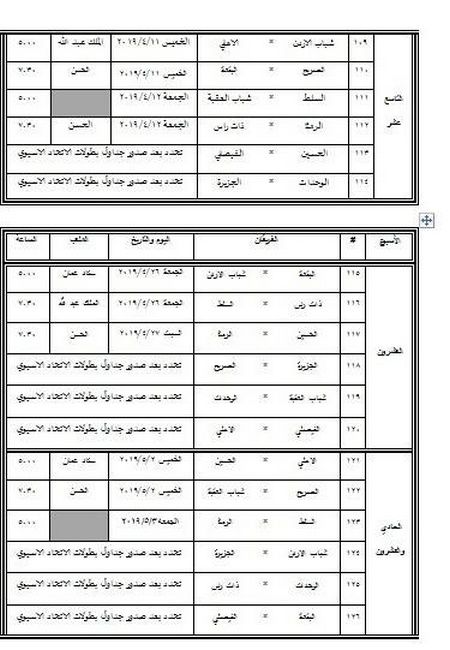 التاسع عشر
١٠٩ شباب الاردن * الاهلي الخميس ٢٠١٩/٤/١١ الملك عبد الله ٥.٠٠
١١٠ الصريح * البقعة الخميس ٢٠١٩/٤/١١ الحسن ٧.٣٠
١١١ السلط * شباب العقبة الجمعة ٢٠١٩/٤/١٢ ٥.٠٠
١١٢ الرمثا * ذات راس الجمعة ٢٠١٩/٤/١٢ الحسن ٧.٣٠
١١٣ الحسين * الفيصلي تحدد بعد صدور جداول بطولات الاتحاد الاسيوي
١١٤ الوحدات * الجزيرة تحدد بعد صدور جداول بطولات الاتحاد الاسيوي
الأسبوع # الفريقان اليوم والتاريخ الملعب الساعة
العشرون
١١٥ البقعة * شباب الاردن الجمعة ٢٠١٩/٤/٢٦ ستاد عمان ٥.٠٠
١١٦ ذات راس * السلط الجمعة ٢٠١٩/٤/٢٦ الملك عبد الله ٧.٣٠
١١٧ الحسين * الرمثا السبت ٢٠١٩/٤/٢٧ الحسن ٧.٣٠
١١٨ الجزيرة * الصريح تحدد بعد صدور جداول بطولات الاتحاد الاسيوي
١١٩ شباب العقبة * الوحدات تحدد بعد صدور جداول بطولات الاتحاد الاسيوي
١٢٠ الفيصلي * الاهلي تحدد بعد صدور جداول بطولات الاتحاد الاسيوي
الحادي والعشرون
١٢١ الاهلي * الحسين الخميس ٢٠١٩/٥/٢ ستاد عمان ٥.٠٠
١٢٢ الصريح * شباب العقبة الخميس ٢٠١٩/٥/٢ الحسن ٧.٣٠
١٢٣ السلط * الرمثا الجمعة ٢٠١٩/٥/٣ ٥.٠٠
١٢٤ شباب الاردن * الجزيرة تحدد بعد صدور جداول بطولات الاتحاد الاسيوي
١٢٥ الوحدات * ذات راس تحدد بعد صدور جداول بطولات الاتحاد الاسيوي
١٢٦ البقعة * الفيصلي تحدد بعد صدور جداول بطولات الاتحاد الاسيوي